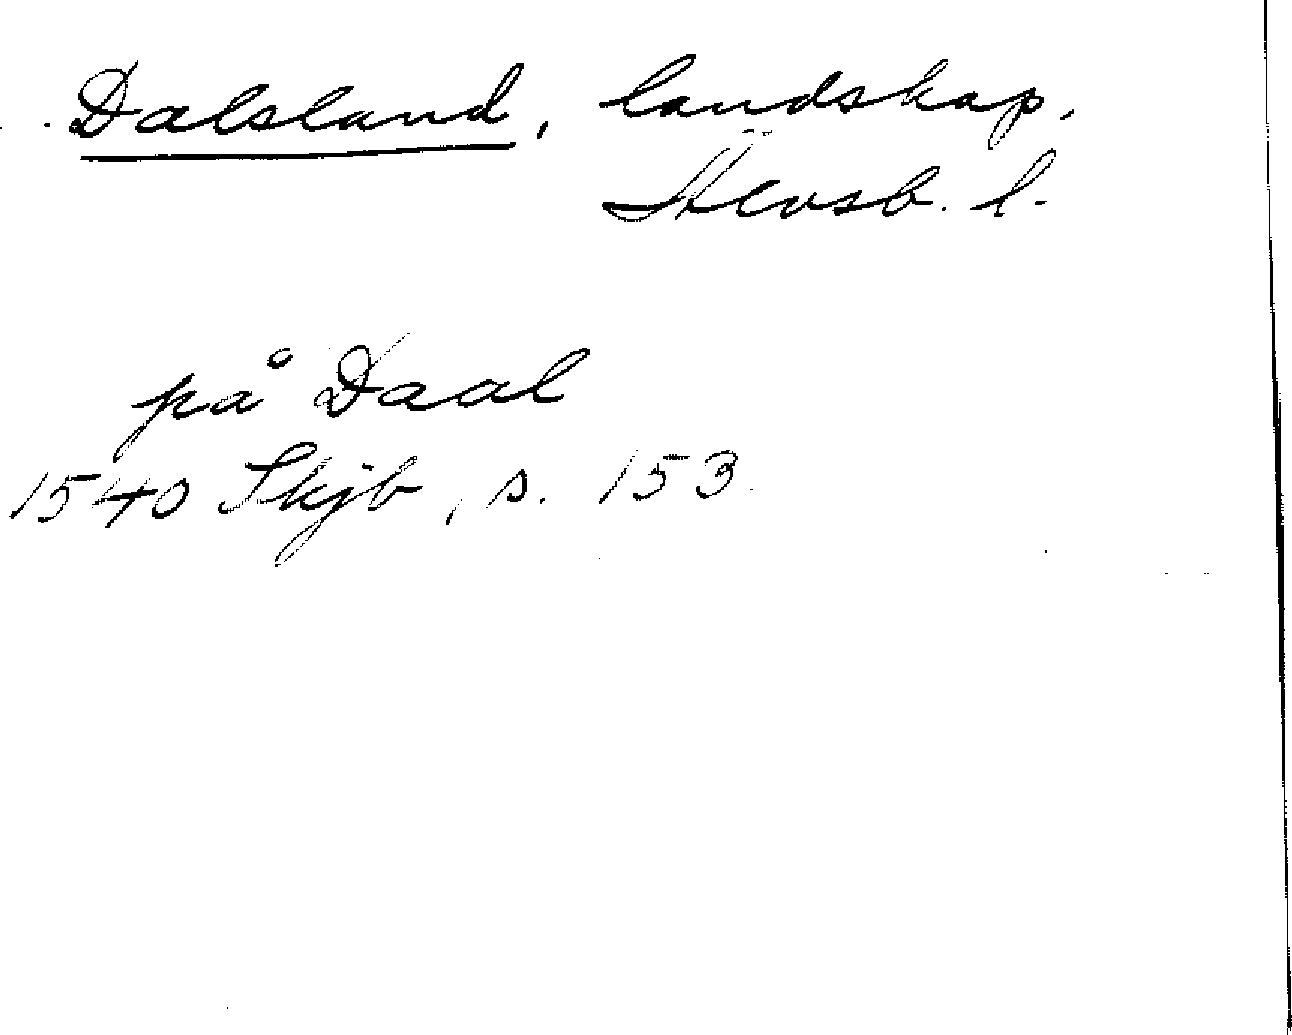 Dalsland, landskap.
Älvsb. l.
på Daal
1540 Skjb, s. 153.